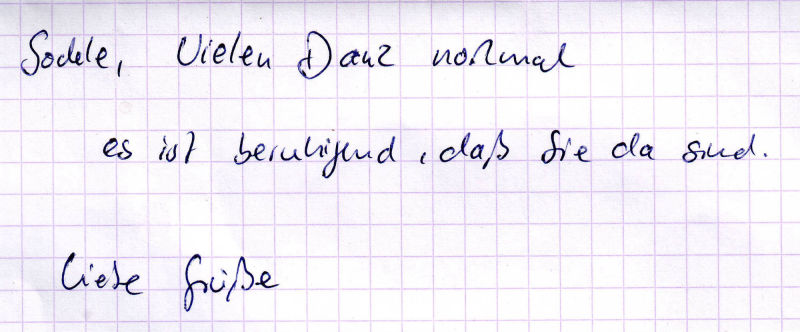 Sodele, Vielen Dank nochmal
es ist beruhigend, daß Sie da sind.
Liebe Grüße